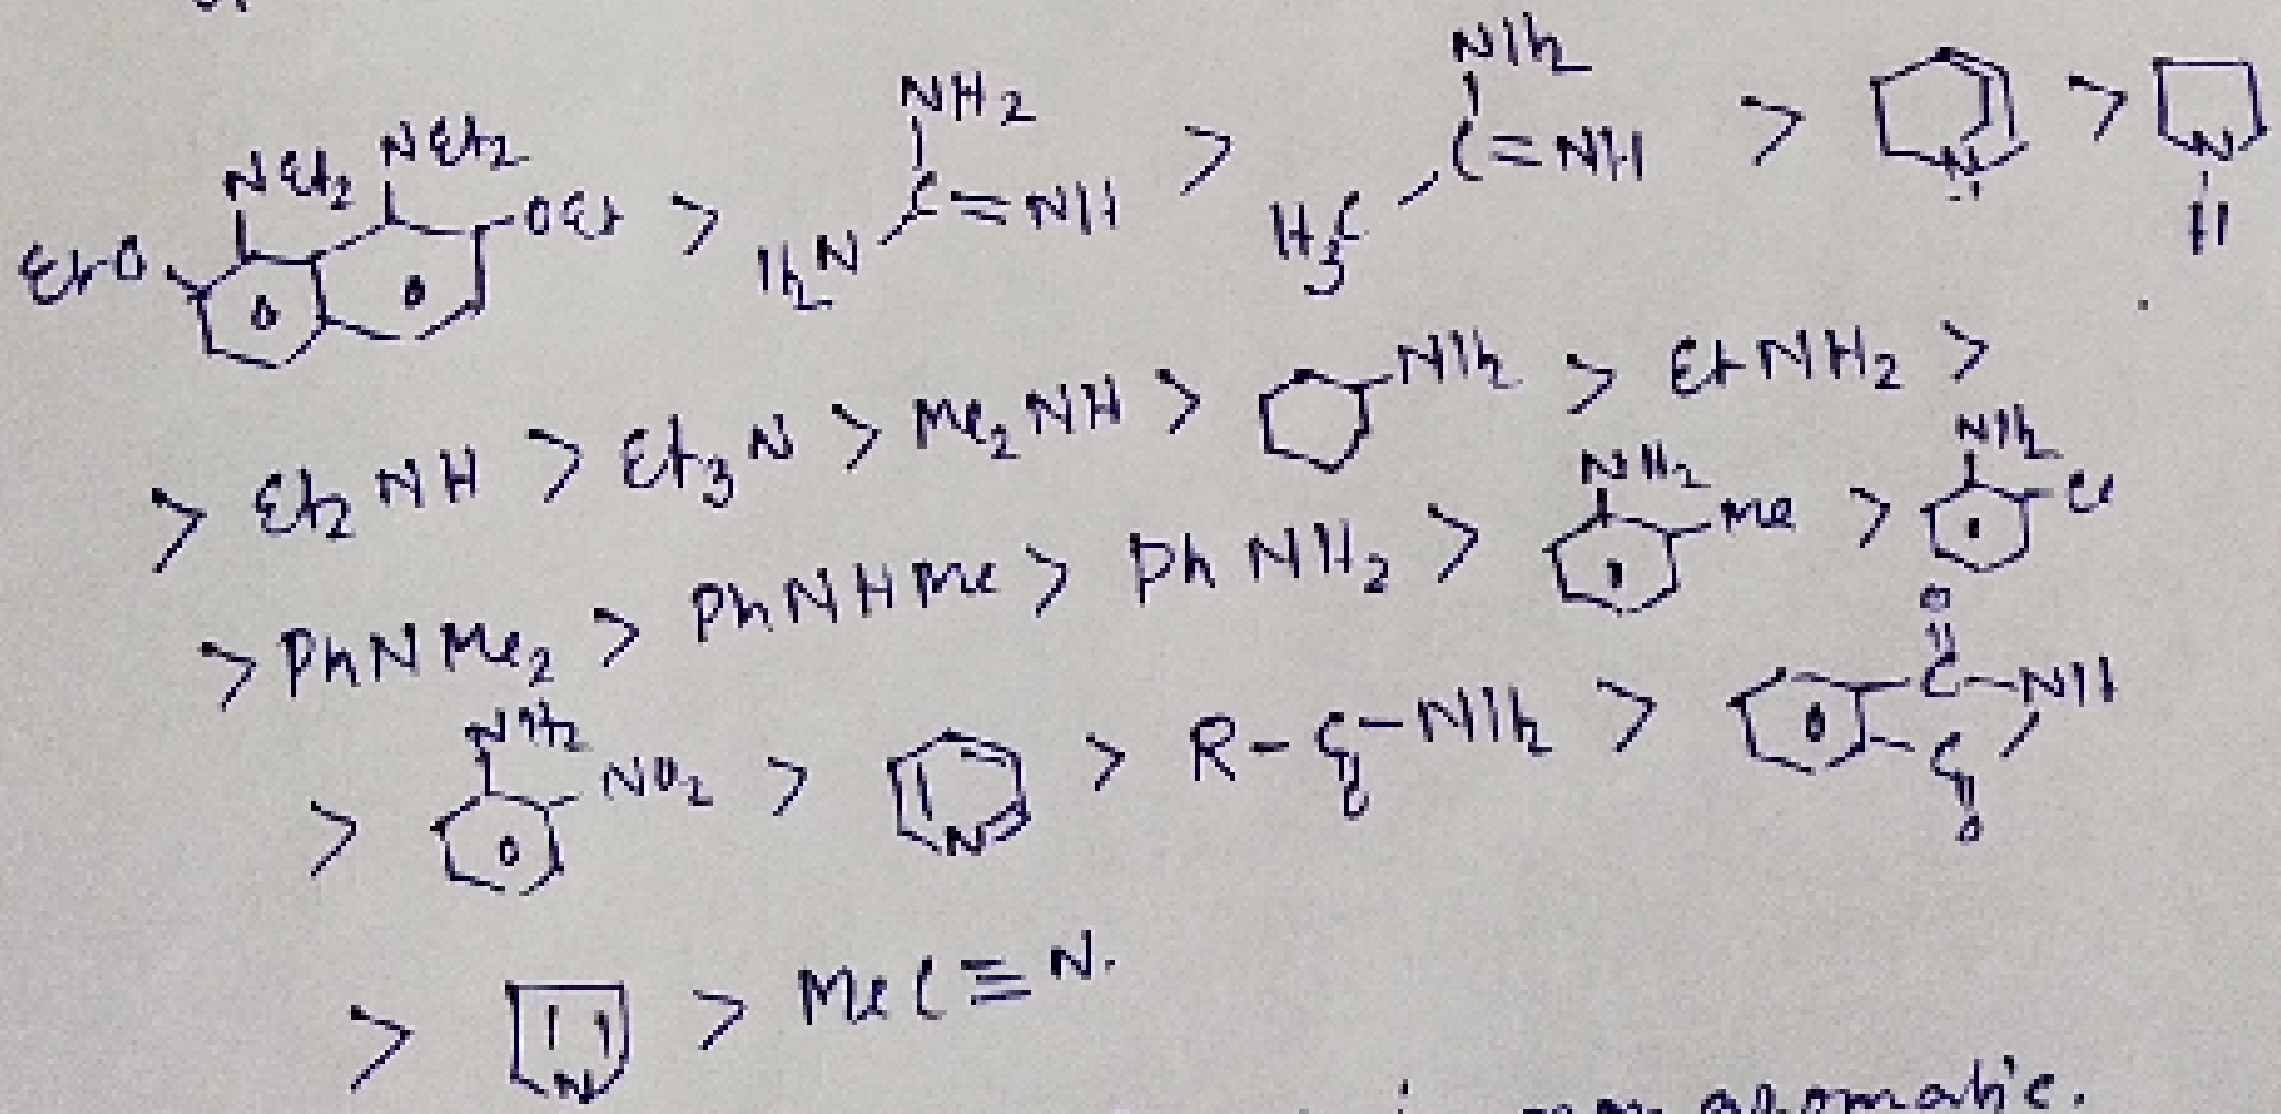 EtO NEt2 NEt2 OEt > H2N NH2 C=NH > H3C NH2 C=NH > N: > N H
> Et2NH > Et3N > Me2NH > NH2 > EtNH2 >
> PhNMe2 > PhNHMe > PhNH2 > NH2 Me > NH2 Cl
> NH2 NO2 > N > R-C-NH2 O > C-NH O C O
> N > MeC≡N.
aromatic.